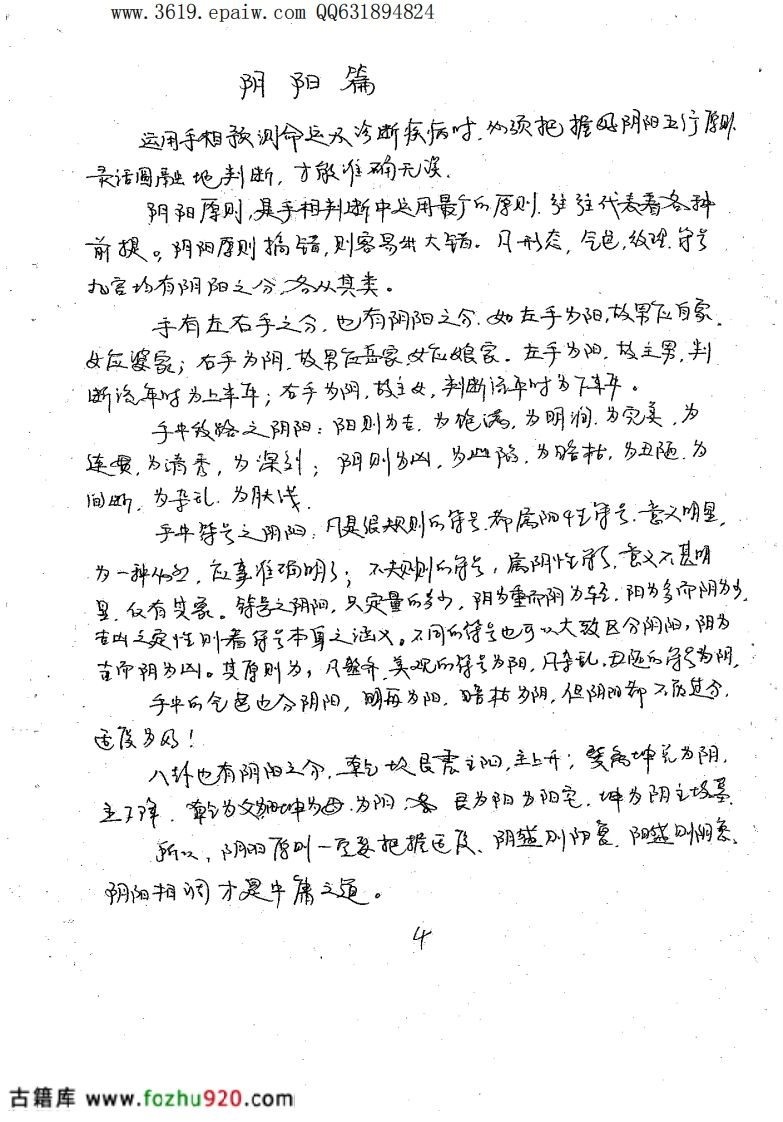 www.3619.epaiw.com QQ631894824
阴阳篇
运用手相预测命运及诊断疾病时,必须把握好阴阳五行原则,
灵活圆融地判断,才能准确无误.
阴阳原则,是手相判断中运用最广的原则,往往代表着各种
前提。阴阳原则搞错,则容易出大错。凡形态,气色,纹理.符号
九宫均有阴阳之分,各从其类。
手有左右手之分,也有阴阳之分.如左手为阳,故男应自家.
女应婆家;右手为阴.故男应岳家,女应娘家.左手为阳.故主男,判
断流年时为上半年;右手为阴,故主女,判断流年时为下半年.
手中纹路之阴阳:阳则为吉.为饱满,为明润.为完美,为
连贯,为清秀,为深刻;阴则为凶,为凹陷.为暗枯,为丑陋.为
间断,为杂乱.为肤浅.
手中符号之阴阳:凡是很规则的符号.都属阳性符号.意义明显,
为一种,应事准确明了;不规则的符号,属阴性符号,意义不甚明
显,仅有其象。符号之阴阳,只定量的多少,阳为重而阴为轻.阳为多而阴为少.
吉凶之定性则看符号本身之涵义。不同的符号也可以大致区分阴阳,阳为
吉而阴为凶。其原则为,凡整齐.美观的符号为阳,凡杂乱.丑陋的符号为阴.
手中的气色也分阴阳,明亮为阳.暗枯为阴,但阴阳都不应过分,
适度为好!
八卦也有阴阳之分.乾坎艮震主阳,主上升;巽离坤兑为阴.
主下降.乾为父坤为母.为阴.艮为阳为阳宅.坤为阴主坟墓.
所以,阴阳原则一定要把握适度、阴盛则阳衰.阳盛则阴衰、
阴阳相调才是中庸之道。
4
古籍库 www.fozhu920.com